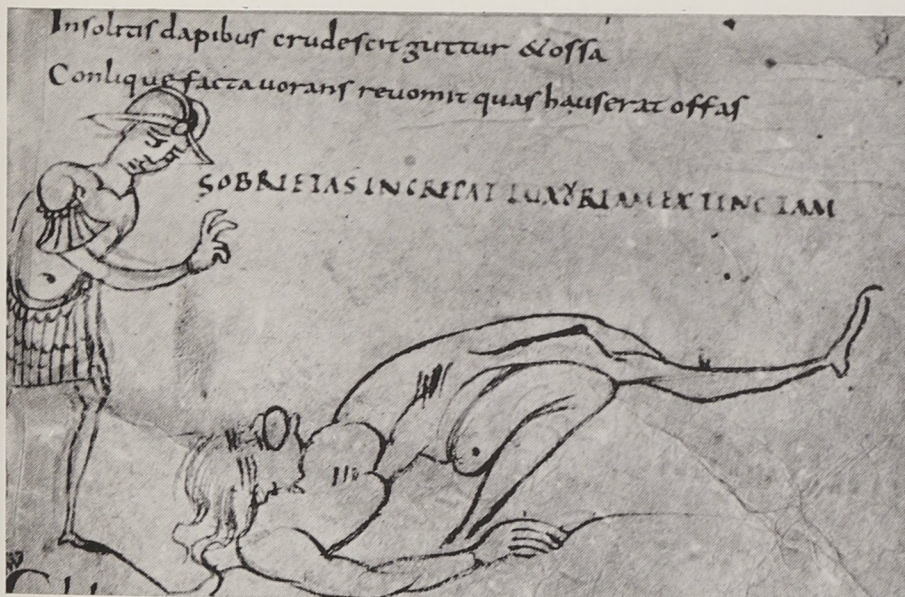 Insolitis dapibus crudescit guttur & ossa
Conlique facta uorans reuomit quas hauserat offas
SOBRIETAS INCREPAT LUXURIAM EXTINCTAM